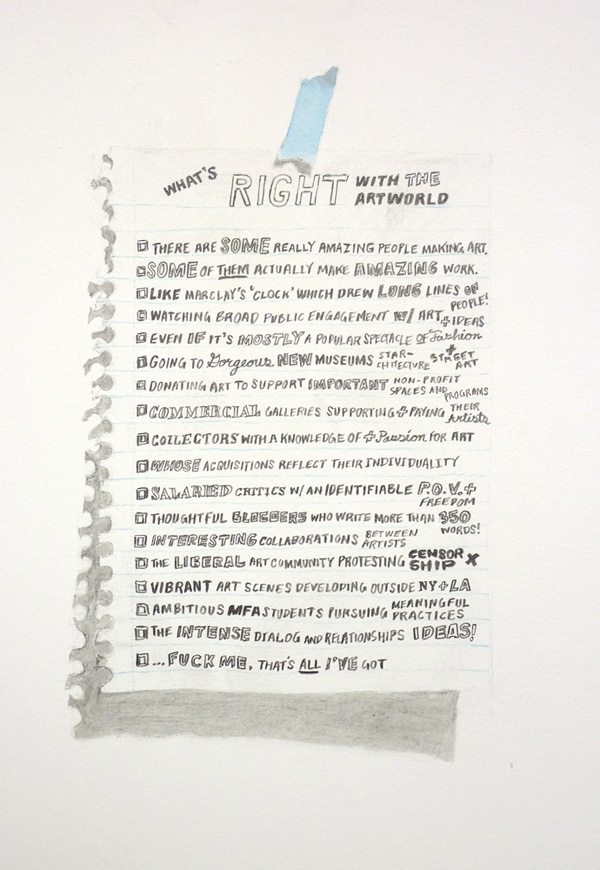 WHAT'S RIGHT WITH THE ARTWORLD
THERE ARE SOME REALLY AMAZING PEOPLE MAKING ART.
SOME OF THEM ACTUALLY MAKE AMAZING WORK.
LIKE MARCLAY'S 'CLOCK' WHICH DREW LONG LINES OF PEOPLE!
WATCHING BROAD PUBLIC ENGAGEMENT W/ ART + IDEAS
EVEN IF IT'S MOSTLY A POPULAR SPECTACLE OF Fashion
GOING TO Gorgeous NEW MUSEUMS STAR-CHITECTURE + STREET ART
DONATING ART TO SUPPORT IMPORTANT NON-PROFIT SPACES AND PROGRAMS
COMMERCIAL GALLERIES SUPPORTING + PAYING THEIR Artists
COLLECTORS WITH A KNOWLEDGE OF + Passion FOR ART
WHOSE ACQUISITIONS REFLECT THEIR INDIVIDUALITY
SALARIED CRITICS W/ AN IDENTIFIABLE P.O.V. + FREEDOM
THOUGHTFUL BLOGGERS WHO WRITE MORE THAN 350 WORDS!
INTERESTING COLLABORATIONS BETWEEN ARTISTS
THE LIBERAL ART COMMUNITY PROTESTING CENSORSHIP X
VIBRANT ART SCENES DEVELOPING OUTSIDE NY + LA
AMBITIOUS MFA STUDENTS PURSUING MEANINGFUL PRACTICES
THE INTENSE DIALOG AND RELATIONSHIPS IDEAS!
... FUCK ME, THAT'S ALL I'VE GOT